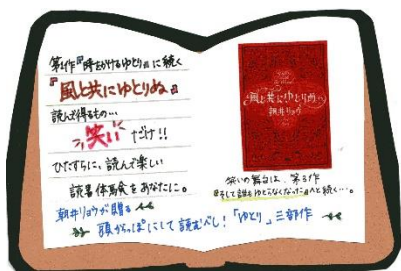 第1作『時をかけるゆとり』に続く
『風と共にゆとりぬ』
読んで得るもの…
笑いだけ!!
ひたすらに、読んで楽しい
読書体験会をあなたに。
朝井リョウが贈る
頭からっぽにして読むべし!「ゆとり」三部作
風と共にゆとりぬ
朝井リョウ
笑いの舞台は、第3作
『そして誰もゆとらなくなった』へと続く…。